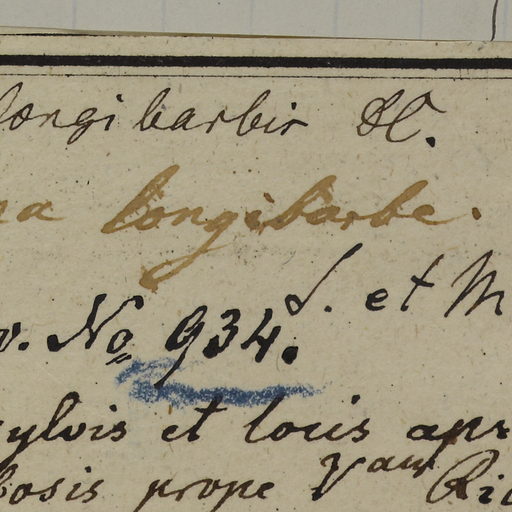 longibarbis
na longibarbe.
S. et M
v. No 934.
sylvis et locis apr
bosis prope